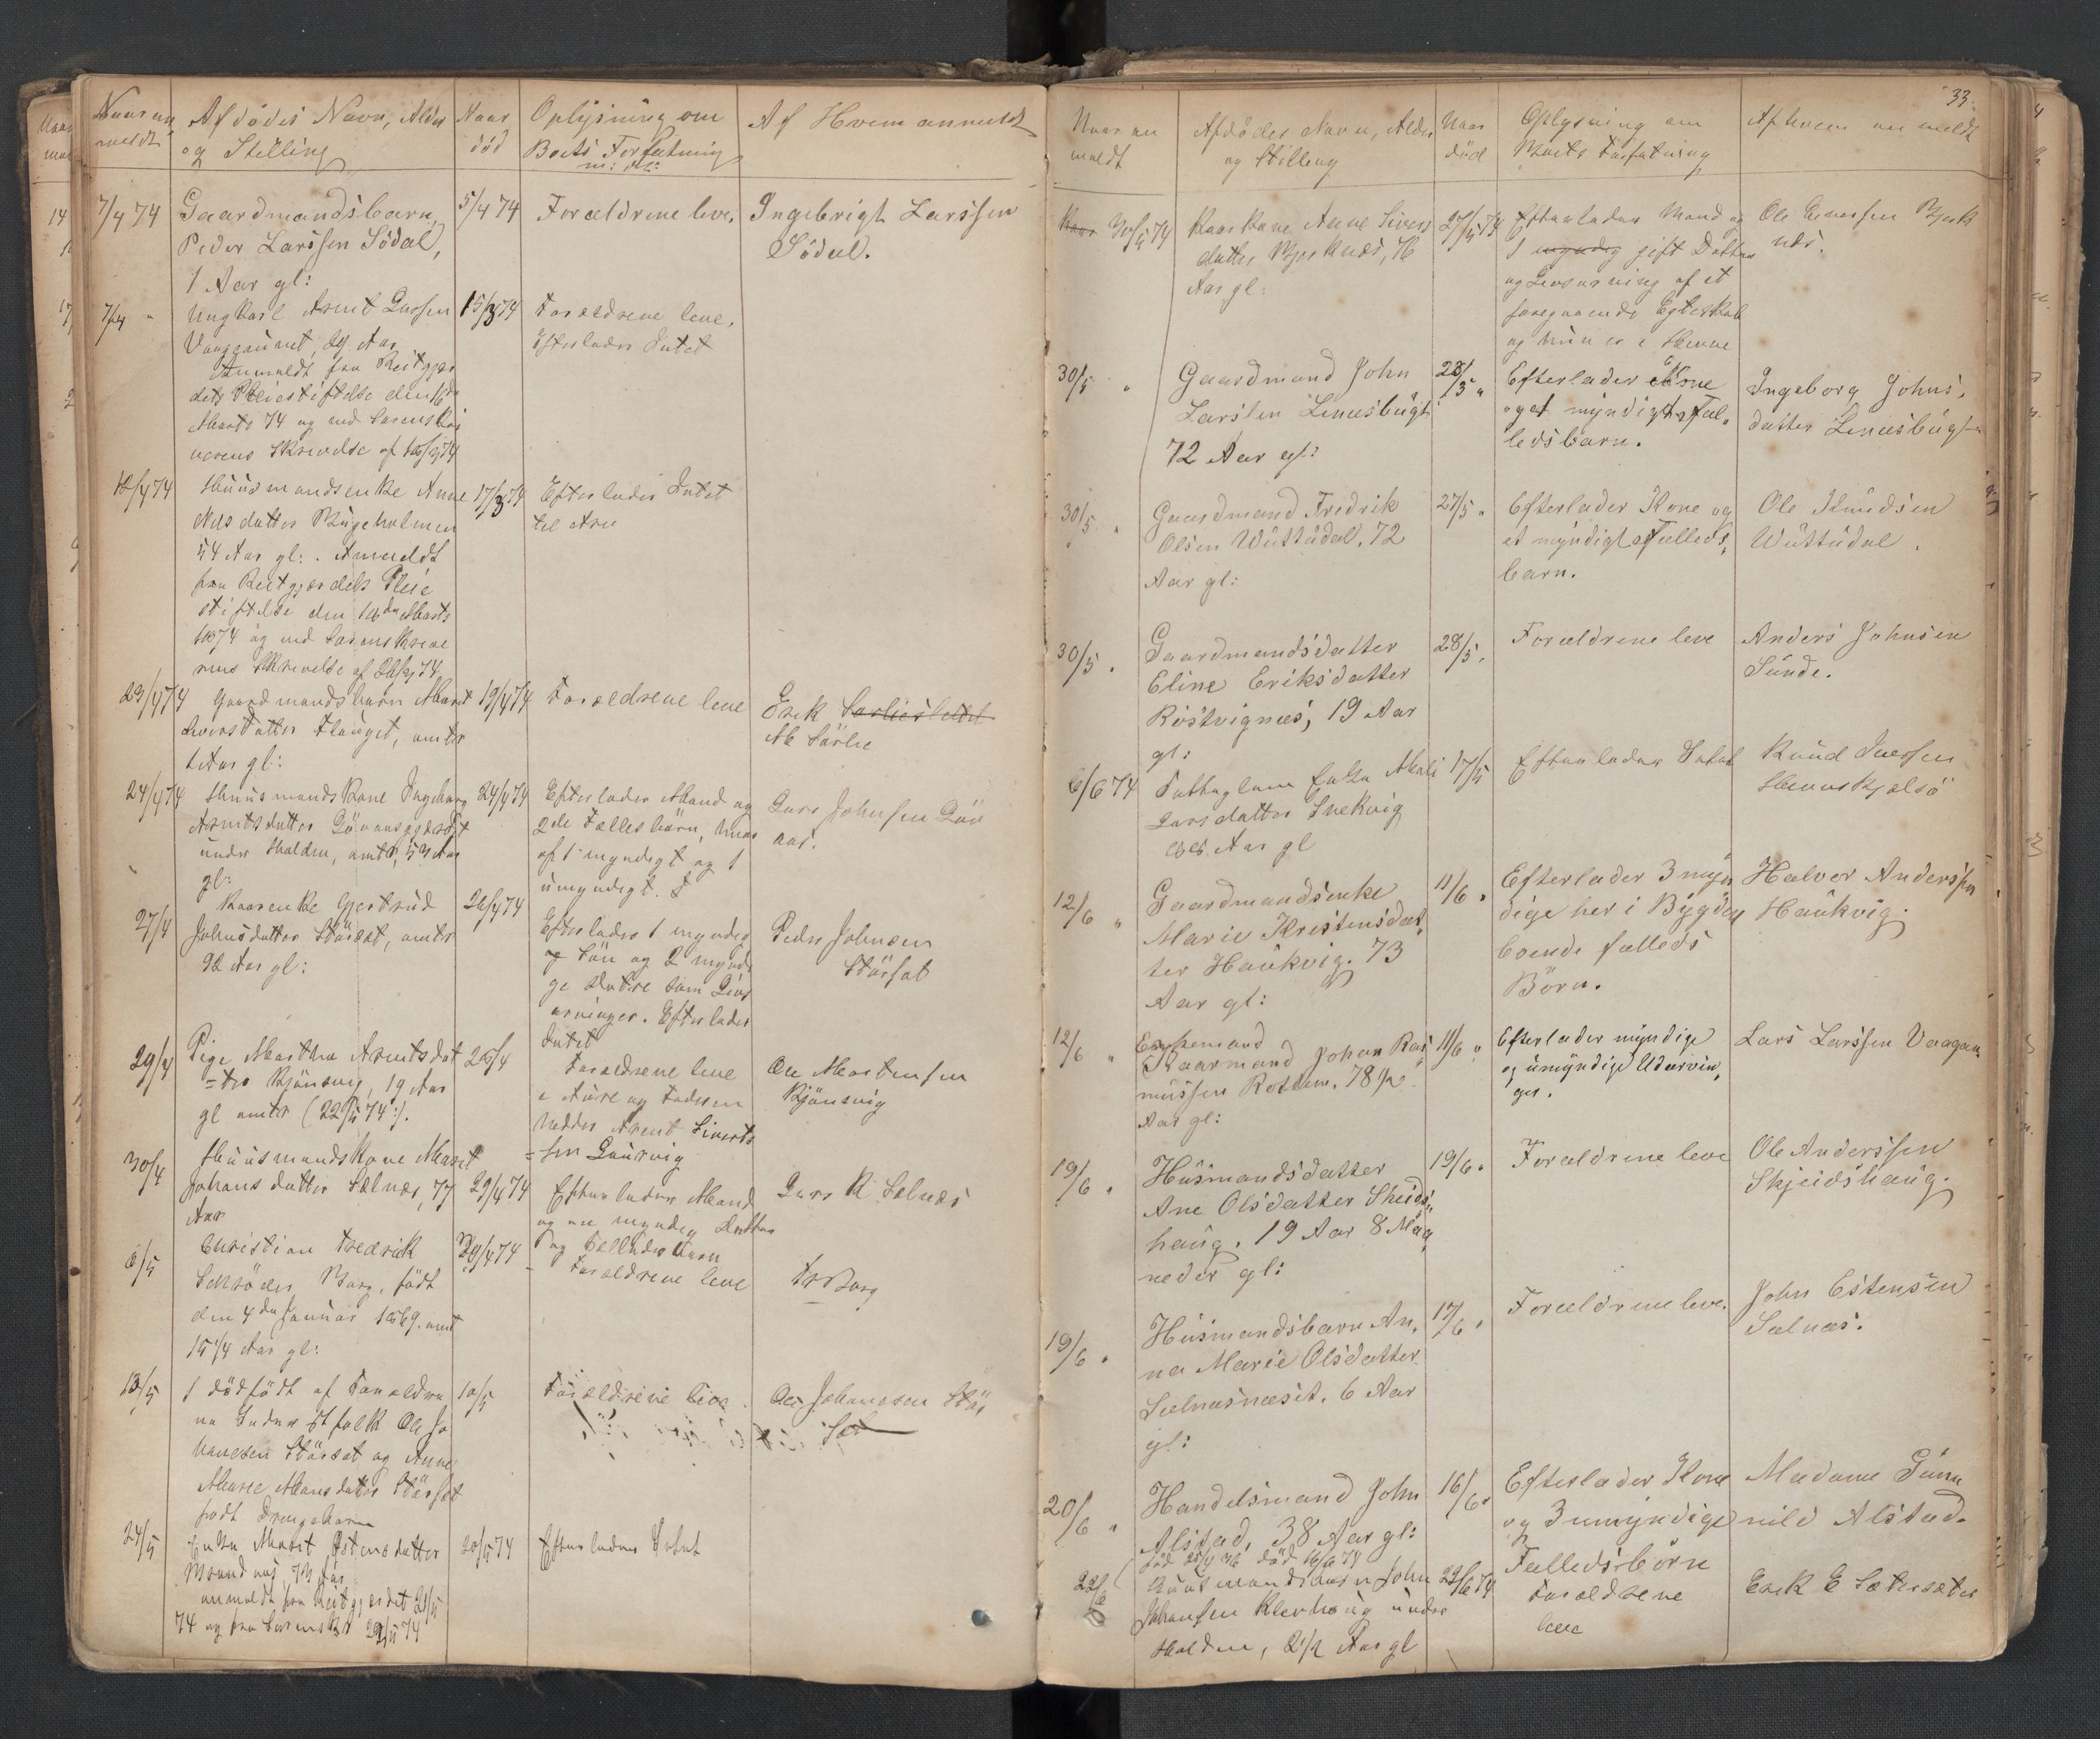 Naar an
meldt
Afdödes Navn, Alder
og Stilling
Naar
död
Oplysning om
Boets Forfatning
m: v:
Af Hvem anmeldt
7/4 74
Gaardmandsbarn
Peder Larssen Södal,
1 Aar gl:
5/4 74
Forældrene leve.
Ingebrigt Larssen
Södal.
7/4 "
Ungkarl Arent Larssen
Aar
Anmeldt fra Reitgjær
dets Pleiestiftelse den 16de
Marts 74 og ved Sorenskri
verens Skrivelse af
15/3 74
Forældrene leve.
Efterlader Intet
18/4 74
Huusmandsenke Anne
Nilsdatter
54 Aar gl: . Anmeldt
fra Reitgjærdets Pleie
stiftelse den 18de Marts
1874 og ved Sorenskrive
rens Skrivelse af
17/3 74
Efterlader Intet
til Arv
23/4 74
Gaardmandsbarn Marit
Iversdatter omtr
1 Aar gl:
19/4 74
Forældrene leve
Erik
M Sörlie
24/4 74
Huusmandskone Ingeborg
Arntsdatter
under Halden, omtr 53 Aar
gl:
24/4 74
Efterlader Mand og
2de Fællesbörn, hvor
af 1 myndigt og 1
umyndigt.
Lars Johnsen Löv
aas.
27/4
Kaarenke Gjertrud
Johnsdatter Störset, omtr
92 Aar gl:
26/4 74
Efterlader 1 myndig
Sön og 2 myndi
ge Dötre som Livs
arvinger. Efterlader
Intet
Peder Johnsen
Störset
29/4
Pige Martha Arntsdat
=ter 19 Aar
gl omtr
26/4
Forældrene leve
i Aure og Faderen
hedder Arent Siverts
=sen
Ole Mortensen
30/4
Huusmandskone Marit
Johansdatter Selnæs, 77
Aar
29/4 74
Efterlader Mand
og en myndig Datter
Lars K. Selnæs
6/5
Christian Fredrik
Schröder Borg, födt
den 4de Januar 1869. omt
5 1/4 Aar gl:
30/4 74
Forældrene leve
Borg
13/5
1 dödfödt af Forældre
ne Inderstfolk Ole Jo
hansen Störset og Anne
Marie Monsdatter Störset
födt Drengebarn
10/5
Forældrene leve.
Ole Johansen Stör
set
24/5
Enke Marit Estensdatter
73 Aar
anmeldt fra Reitgjærdet 21/5
74 og fra Sorenskr 22/5 74
20/5 74
Efterlader Intet
33.
Naar an
meldt
Afdödes Navn, Alder
og Stilling
Naar
död
Oplysning om
Boets Forfatning
Af hvem anmeldt
30/5 74
Kaarkone Anne Sivers
datter Bjerknæs, 76
Aar gl:
27/5 74
Efterlader Mand og
1 myndig gift Datter
og Livsarving af et
foregaaende Egteskab
og hun er i Hevne
Ole Bjerk
næs.
30/5 "
Gaardmand John
Larssen Lenesbugt
72 Aar gl:
28/5 "
Efterlader Kone
og et myndigt Fæl,
ledsbarn.
Ingeborg Johns,
datter Lenesbugt
30/5 "
Gaardmand Fredrik
Olsen Wuttudal, 72
Aar gl:
27/5 "
Efterlader Kone og
et myndigt Fælleds,
barn.
Ole Knudsen
Wuttudal.
30/5 "
Gaardmandsdatter
Eline Eriksdatter
Röstvignæs, 19 Aar
gl:
28/5 "
Forældrene leve
Anders Johnsen
Sunde.
6/6 74
Fattiglem Enke Mali
Larsdatter Snekvig
Aar gl
17/5
Efterlader Intet
Knud Iverssen
Hevnskjelsö
12/6 "
Gaardmandsenke
Marie Kristensdat,
ter Haukvig. 73
Aar gl:
11/6 "
Efterlader 3 myn
dige her i Bygden
boende fælleds
Börn.
Halvor Anderssen
Haukvig.
12/6 "
Enkemand
Kaarmand Johan Ras
mussen Rottem. 78 1/2
Aar gl:
11/6 "
Efterlader myndige
og umyndige Udarvin,
ger.
Lars Larssen Vaagan
19/6 "
Husmandsdatter
Ane Olsdatter Skeids,
haug. 19 Aar 8 Maa,
neder gl:
19/6 "
Forældrene leve
Ole Anderssen
Skjeidshaug.
19/6 "
Husmandsbarn An,
na Marie Olsdatter
Selnæsnæsit. 6 Aar
gl:
17/6 "
Forældrene leve.
John Estensen
Selnæs.
20/6 "
Handelsmand John
Alstad, 38 Aar gl:
född 25/4 36 död 16/6 74
16/6 "
Efterlader Kone
og 3 umyndige
Fælledsbörn
Madame Gun
nild Alstad.
22/6
Huusmandsbarn John
Johansen Klevhaug under
Halden, 2 1/2 Aar gl
22/6 74
Forældrene
leve
Erik E Sætersæter